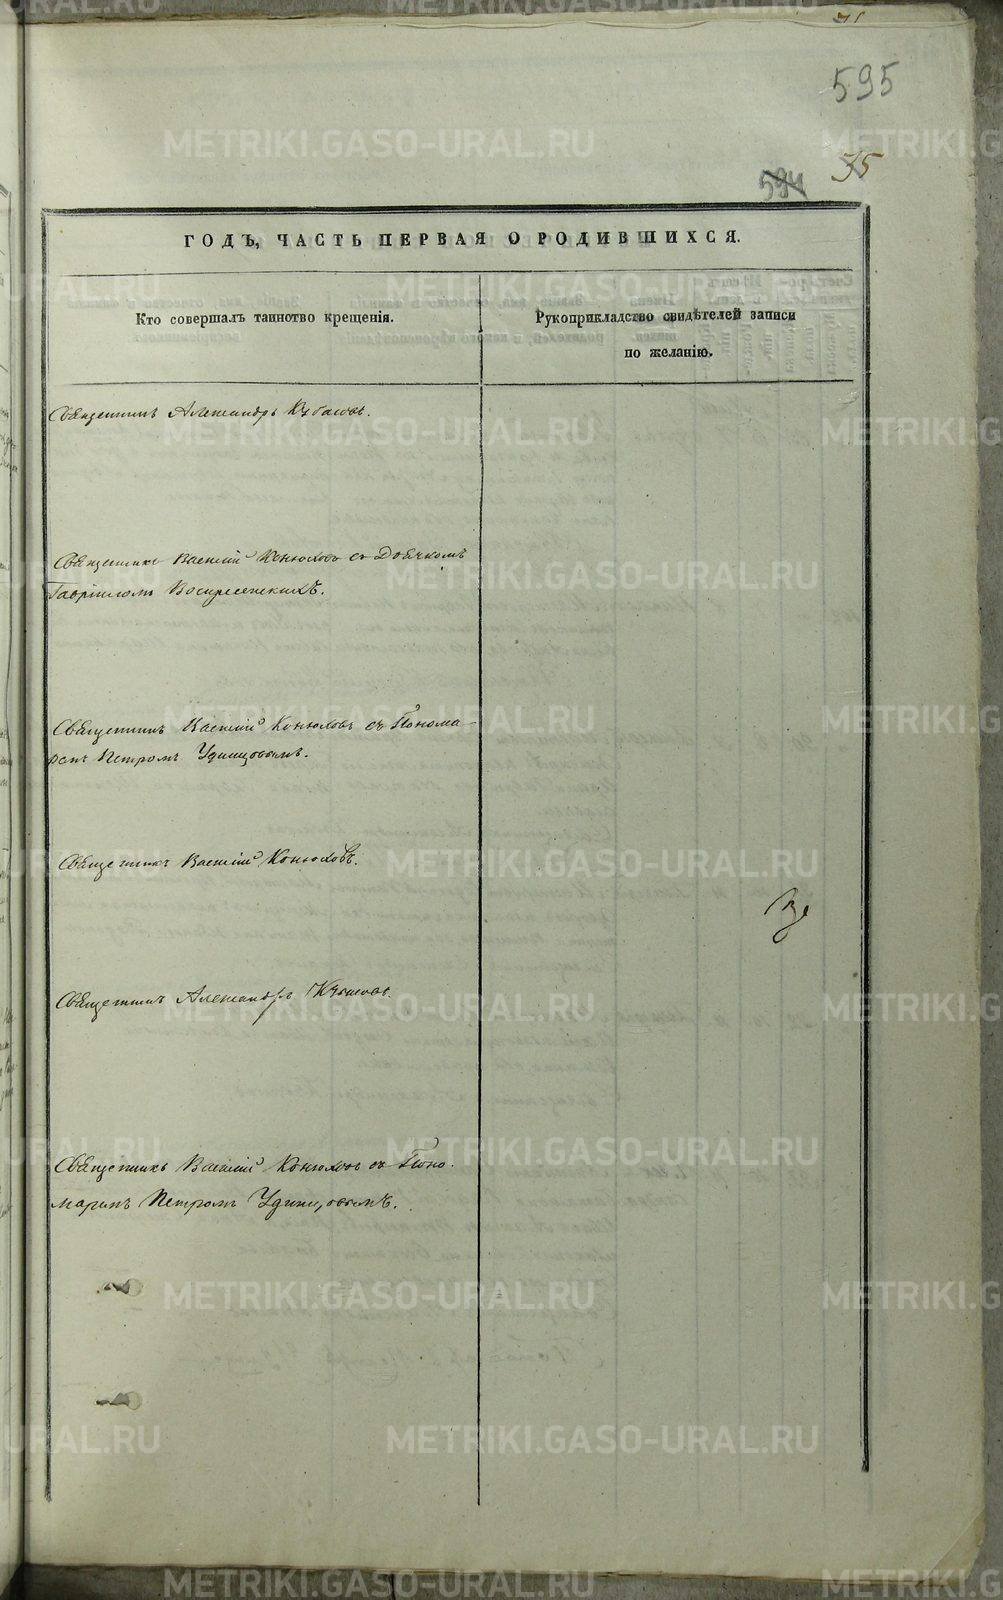 595
594
75
ГОДЪ, ЧАСТЬ ПЕРВАЯ О РОДИВШИХСЯ.
Кто совершалъ таинство крещенія.
Рукоприкладство свидѣтелей записи
по желанію.
Священникъ Александръ
Священникъ Василій Конюховъ съ Дьячкомъ
Гавріиломъ Воскресенскимъ.
Священникъ Василій Конюховъ съ Понома-
ремъ Петромъ Удинцовымъ.
Священникъ Василій Конюховъ.
Священникъ Александръ
Священникъ Василій Конюховъ съ Поно-
маремъ Петромъ Удинцовымъ.
METRIKI.GASO-URAL.RU